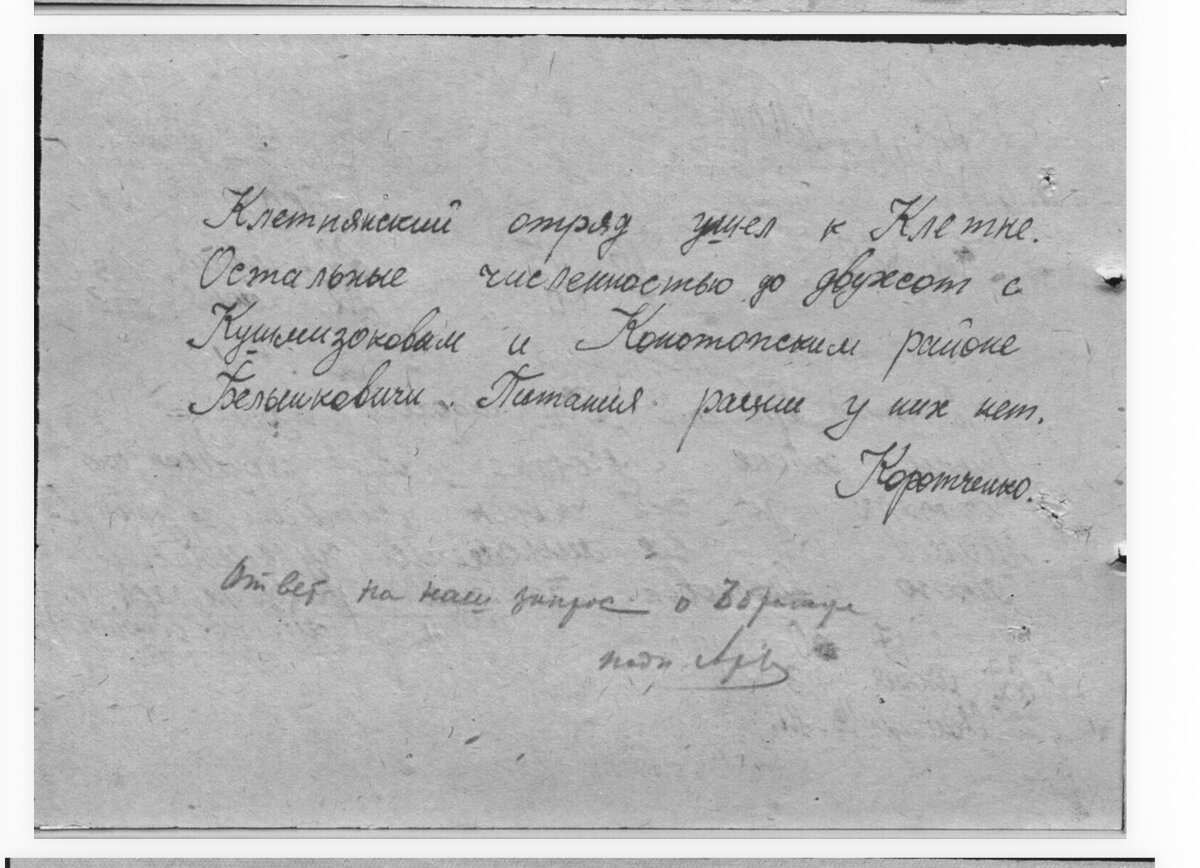 Клетнянский отряд ушел к Клетне.
Остальные численностью до двухсот с
Кушмизоковым и Конотопским районе
Бельшковичи. Питания рации у них нет.
Коротченко.
Ответ на наш запрос о